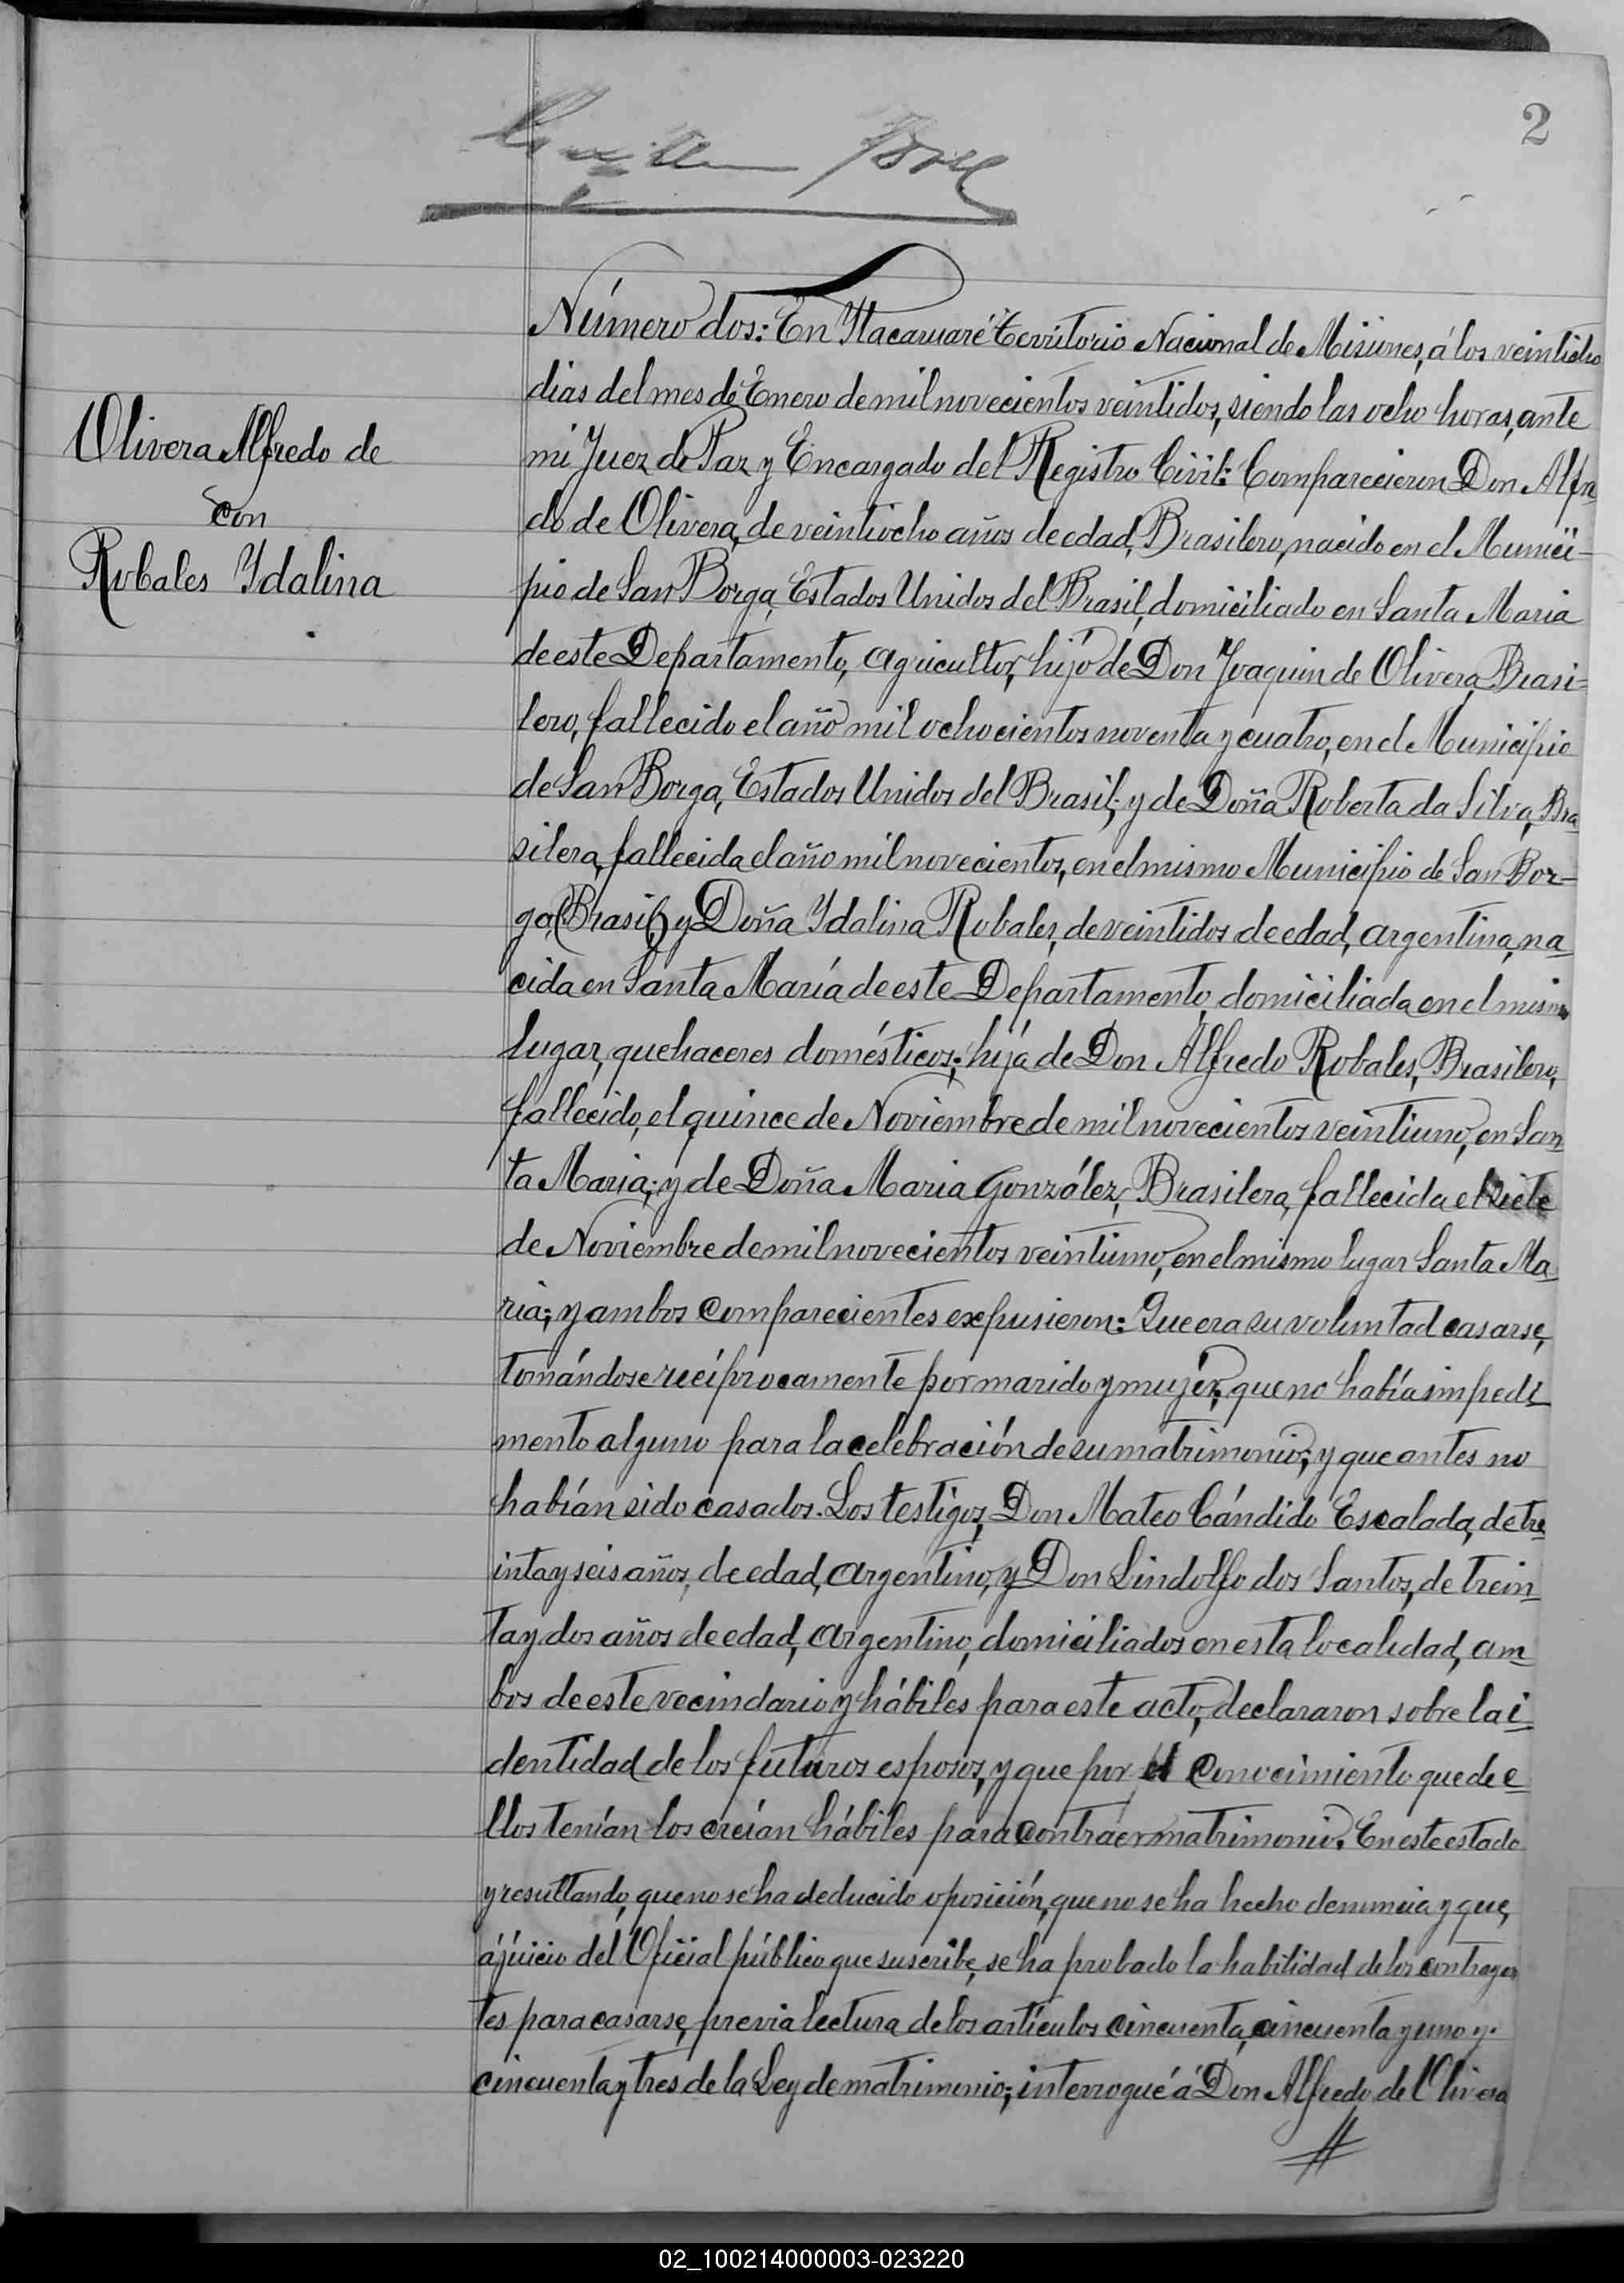 2
Olivera Alfredo de
con
Robales Ydalina
Número dos: En Ytacaruaré Territorio Nacional de Misiones, á los veintiocho
dias del mes de Enero de mil novecientos veintidos, siendo las ocho horas, ante
mi Juez de Paz y Encargado del Registro Civil: Comparecieron Don Alfre
do de Olivera, de veintiocho años de edad, Brasilero, nacido en el Munici-
pio de San Borga, Estados Unidos del Brasil, domiciliado en Santa Maria
de este Departamento, agricultor, hijo de Don Joaquin de Olivera, Brasi=
lero, fallecido el año mil ochocientos noventa y cuatro, en el Municipio
de San Borga, Estados Unidos del Brasil; y de Doña Roberta da Silva, Bra
silera, fallecida el año mil novecientos, en el mismo Municipio de San Bor-
ga, (Brasil) y Doña Ydalina Robales, de veintidos de edad, argentina, na
cida en Santa María de este Departamento, domiciliada en el mismo
lugar, quehaceres domésticos; hija de Don Alfredo Robales, Brasilero,
fallecido, el quince de Noviembre de mil novecientos veintiuno, en San
ta Maria; y de Doña Maria González, Brasilera, fallecida el siete
de Noviembre de mil novecientos veintiuno, en el mismo lugar Santa Ma
ria; y ambos comparecientes expusieron: Que era su voluntad casarse,
tomándose recíprocamente por marido y mujer, que no había impedi
mento alguno para la celebración de su matrimonio; y que antes no
habían sido casados. Los testigos, Don Mateo Cándido Escalada, de tre
inta y seis años, de edad, argentino, y Don Lindolfo dos Santos, de trein
ta y dos años de edad, argentino, domiciliados en esta localidad, am
bos de este vecindario y hábiles para este acto, declararon sobre la i
dentidad de los futuros esposos, y que por el conocimiento que de e
llos tenían los creían hábiles para contraer matrimonio. En este estado
y resultando, que no se ha deducido oposición, que no se ha hecho denuncia y que,
á juicio del Oficial público que suscribe, se ha probado la habilidad de los contrayen
tes para casarse, previa lectura de los artículos cincuenta, cincuenta y uno y
cincuenta y tres de la Ley de matrimonio; interrogué á Don Alfredo de Olivera
//
02_100214000003-023220